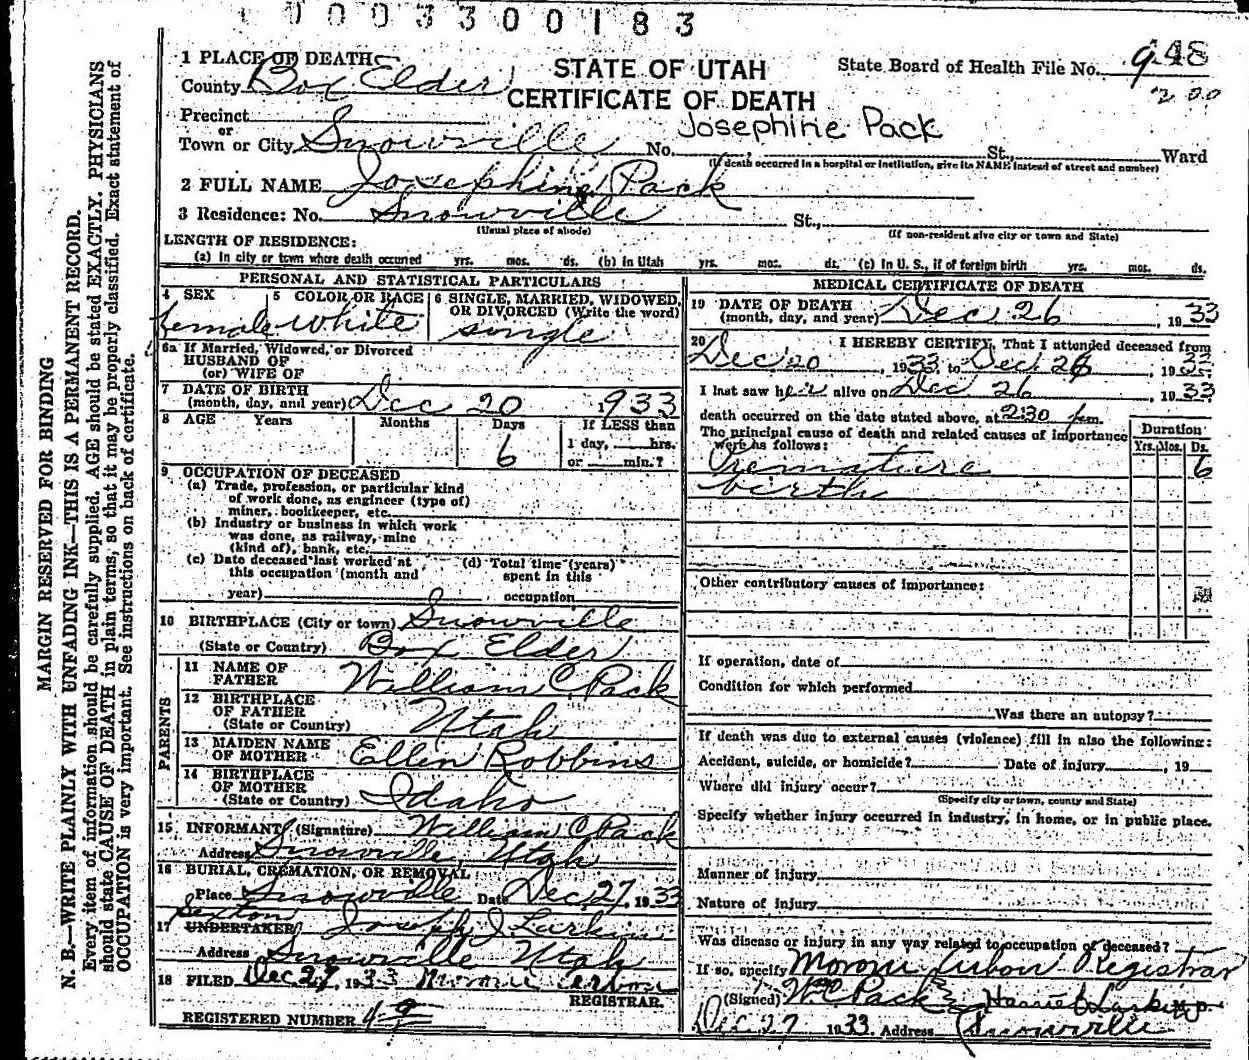 0003300183
1 PLACE OF DEATH
County Box Elder
STATE OF UTAH
CERTIFICATE OF DEATH
State Board of Health File No. 948
200
Precinct
or
Town or City Snowville No. St., Ward
Josephine Pack
(If death occurred in a hospital or institution, give its NAME instead of street and number)
2 FULL NAME Josephine Pack
3 Residence: No. Snowville St.,
(Usual place of abode) (If non-resident give city or town and State)
LENGTH OF RESIDENCE:
(a) In city or town where death occurred yrs. mos. ds. (b) in Utah yrs. mos. ds. (c) In U. S., if of foreign birth yrs. mos. ds.
PERSONAL AND STATISTICAL PARTICULARS
4 SEX female
5 COLOR OR RACE white
6 SINGLE, MARRIED, WIDOWED, OR DIVORCED (Write the word) single
6a If Married, Widowed, or Divorced
HUSBAND OF
(or) WIFE OF
7 DATE OF BIRTH
(month, day, and year) Dec 20 1933
8 AGE Years Months Days If LESS than
6 1 day, hrs.
or min.?
9 OCCUPATION OF DECEASED
(a) Trade, profession, or particular kind
of work done, as engineer (type of)
miner, bookkeeper, etc.
(b) Industry or business in which work
was done, as railway, mine
(kind of), bank, etc.
(c) Date deceased last worked at
this occupation (month and
year)
(d) Total time (years)
spent in this
occupation
10 BIRTHPLACE (City or town) Snowville
(State or Country) Box Elder
PARENTS
11 NAME OF
FATHER William C. Pack
12 BIRTHPLACE
OF FATHER
(State or Country) Utah
13 MAIDEN NAME
OF MOTHER Ellen Robbins
14 BIRTHPLACE
OF MOTHER
(State or Country) Idaho
15 INFORMANT (Signature) William C Pack
Address Snowville, Utah
16 BURIAL, CREMATION, OR REMOVAL
Place Snowville Date Dec, 27, 1933
Sexton
17 UNDERTAKER Joseph J Larkin
Address Snowville Utah
18 FILED Dec 27, 1933 Moroni
REGISTRAR.
REGISTERED NUMBER 49
MEDICAL CERTIFICATE OF DEATH
19 DATE OF DEATH
(month, day, and year) Dec 26, 1933
20 I HEREBY CERTIFY, That I attended deceased from
Dec 20, 1933, to Dec 26, 1933
I last saw her alive on Dec 26, 1933
death occurred on the date stated above, at 2:30 p.m.
The principal cause of death and related causes of importance
were as follows:
Duration
Yrs. Mos. Ds.
Premature 6
birth
Other contributory causes of importance:
If operation, date of
Condition for which performed
Was there an autopsy?
If death was due to external causes (violence) fill in also the following:
Accident, suicide, or homicide? Date of injury , 19
Where did injury occur?
(Specify city or town, county and State)
Specify whether injury occurred in industry, in home, or in public place.
Manner of injury
Nature of injury
Was disease or injury in any way related to occupation of deceased?
If so, specify Moroni Registrar
(Signed) W C Pack Larkin M.D.
Dec 27 1933. Address Snowville
MARGIN RESERVED FOR BINDING
N. B.—WRITE PLAINLY WITH UNFADING INK—THIS IS A PERMANENT RECORD.
Every item of information should be carefully supplied. AGE should be stated EXACTLY. PHYSICIANS
should state CAUSE OF DEATH in plain terms, so that it may be properly classified. Exact statement of
OCCUPATION is very important. See instructions on back of certificate.